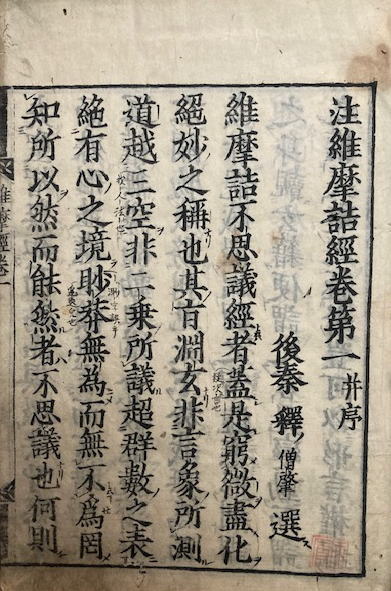 注維摩詰經卷第一 并序
後秦釋 僧肇 選
維摩詰不思議經者蓋是窮微盡化
絕妙之稱也其旨淵玄非言象所測
道越三空非二乗所議超群數之表
絕有心之境眇莾無為而無不為罔
知所以然而能然者不思議也何則
維摩經卷一